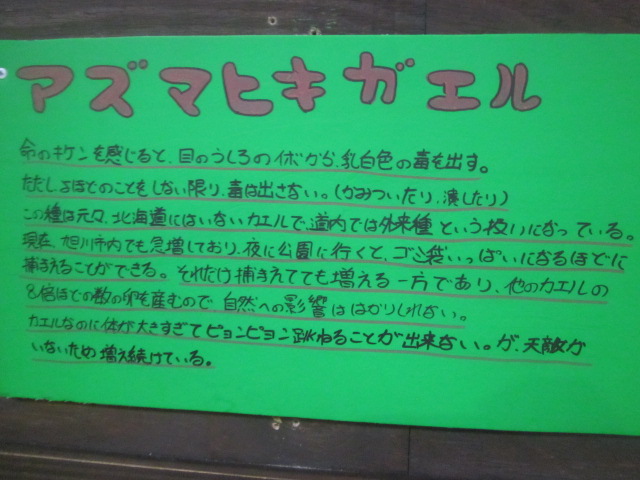 アズマヒキガエル
命のキケンを感じると、目のうしろのイボから、乳白色の毒を出す。
ただしよほどのことをしない限り、毒は出さない。(かみついたり、潰したり)
この種は元々、北海道にはいないカエルで、道内では外来種という扱いになっている。
現在、旭川市内でも急増しており、夜に公園に行くと、ゴミ袋いっぱいになるほどに
捕まえることができる。それだけ捕まえてても増える一方であり、他のカエルの
8倍ほどの数の卵を産むので、自然への影響ははかりしれない。
カエルなのに体が大きすぎてピョンピョン跳ねることが出来ない。が、天敵が
いないため増え続けている。